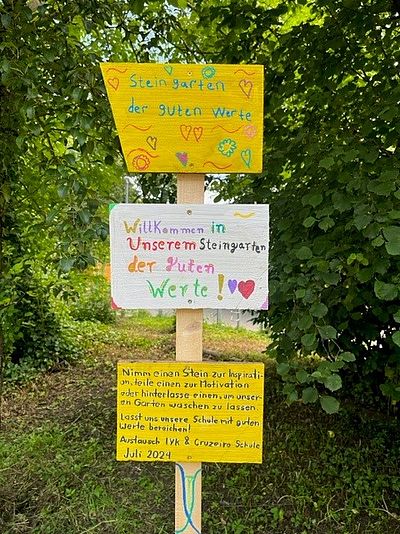 Steingarten
der guten Werte
Willkommen in
Unserem Steingarten
der guten
Werte!
Nimm einen Stein zur Inspirati-
on, teile einen zur Motivation
oder hinterlasse einen, um unser-
en Garten waschen zu lassen.
Lasst uns unsere Schule mit guten
Werte bereichen!
Austausch IYK & Cruzeiro Schule
Juli 2024